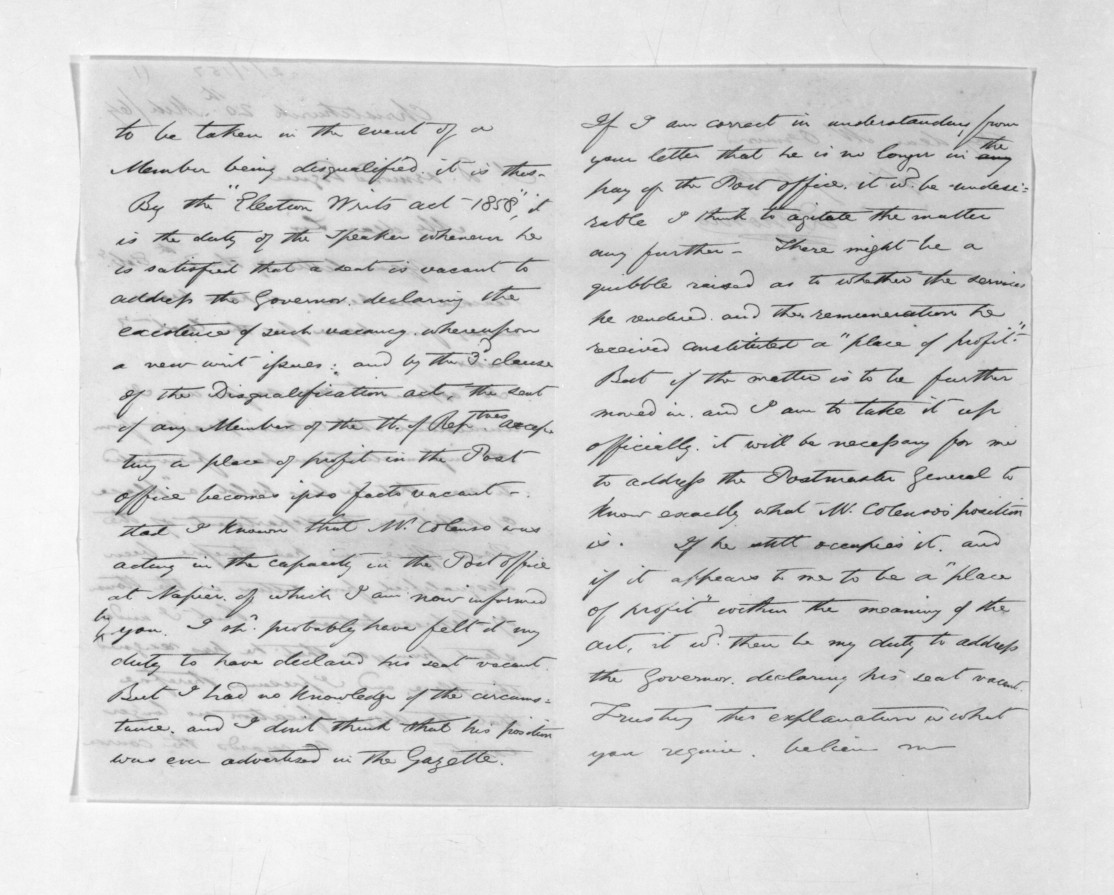 to be taken in the event of a
Member being disqualified, it is this-
By the "Election Writs act - 1858", it
is the duty of the Speaker whenever he
is satisfied that a seat is vacant to
address the Governor. declaring the
existence of such vacancy. whereupon
a new writ issues: and by the 3d. clause
of the Disqualification act, "the seat
of any Member of the H. of Reptives accep
ting a place of profit in the Post
office becomes ipso facto vacant-
Had I known that Mr. Colenso was
acting in the capacity in the Post office
at Napier. of which I am now informed
by you. I shd. probably have felt it my
duty to have declared his seat vacant.
But I had no knowledge of the circums=
tance. and I don't think that his position
was ever advertised in the Gazette.
If I am correct in understanding from
your letter that he is no longer in any the
pay of the Post office. it wd. be undesi=
rable I think to agitate the matter
any further- There might be a
quibble raised as to whether the services
he rendered. and the remuneration he
received constituted a "place of profit".
But if the matter is to be further
moved in. and I am to take it up
officially. it will be necessary for me
to address the Postmaster General to
know exactly what Mr. Colenso's position
is. If he still occupies it. and
if it appears to me to be a "place
of profit" within the meaning of the
act, it wd. then be my duty to address
the Governor. declaring his seat vacant.
Trusting this explanation is what
you require. believe me